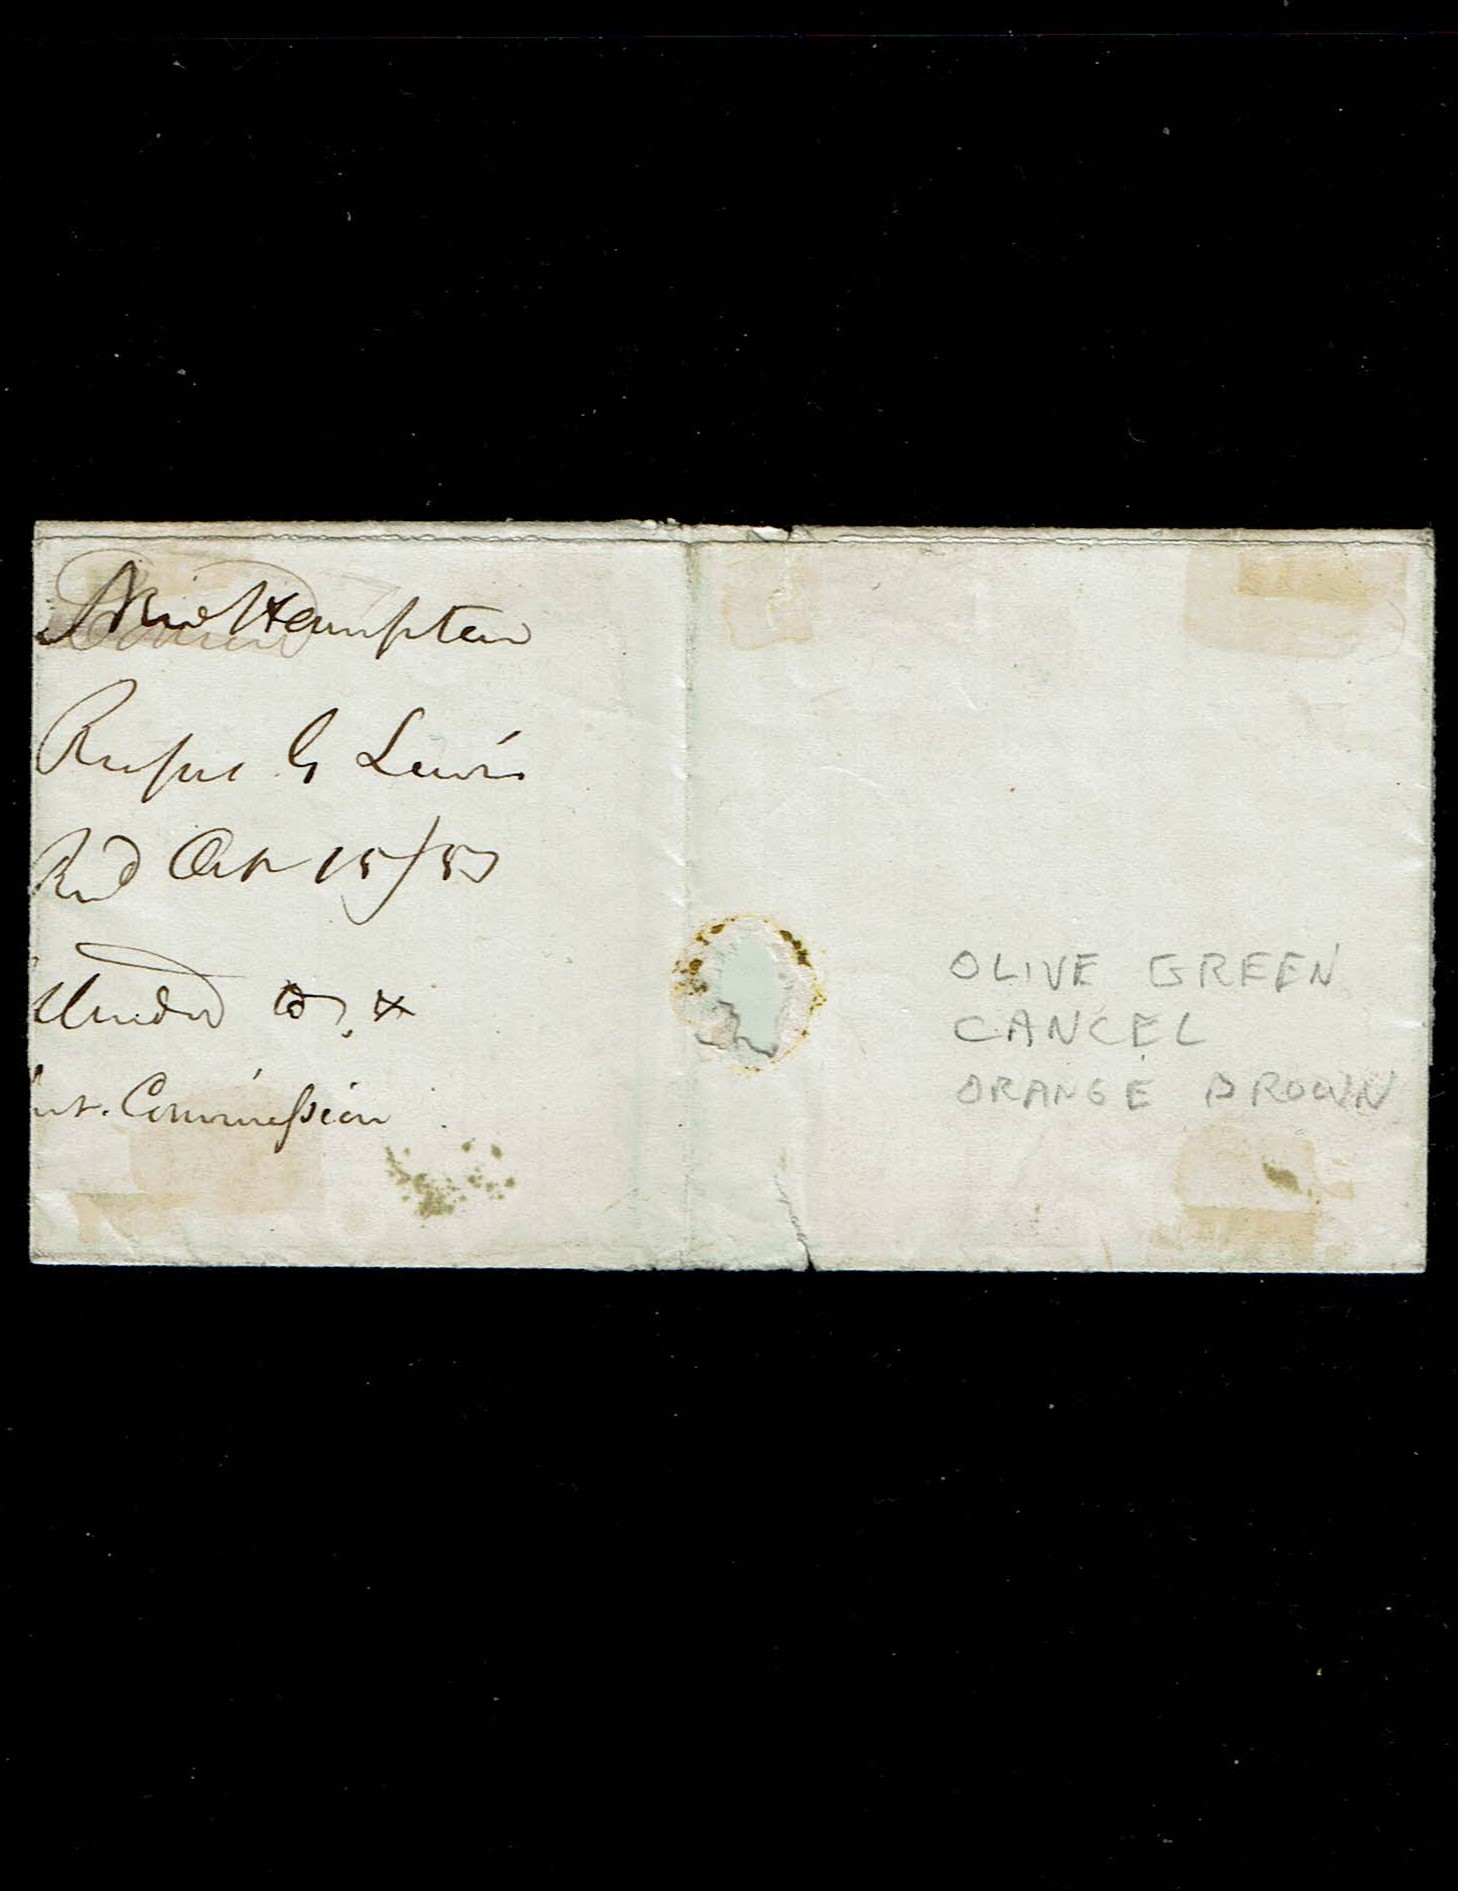 New Hampton
Rufus G Lewis
Rec'd Oct 15/53
Commission
OLIVE GREEN
CANCEL
ORANGE BROWN